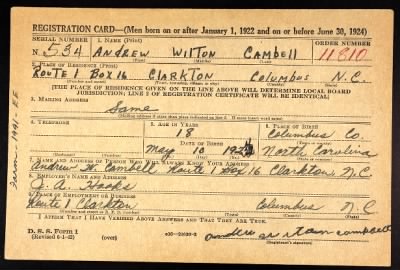 REGISTRATION CARD—(Men born on or after January 1, 1922 and on or before June 30, 1924)
SERIAL NUMBER 1. NAME (Print) ORDER NUMBER
N. 534 ANDREW WILTON CAMBELL 11810
2. PLACE OF RESIDENCE (Print)
ROUTE 1 BOX 16 CLARKTON COLUMBUS N.C.
[THE PLACE OF RESIDENCE GIVEN ON THE LINE ABOVE WILL DETERMINE LOCAL BOARD
JURISDICTION; LINE 2 OF REGISTRATION CERTIFICATE WILL BE IDENTICAL]
3. MAILING ADDRESS
Same
[Mailing address if other than place indicated on line 2. If same insert word same]
4. TELEPHONE 5. AGE IN YEARS 6. PLACE OF BIRTH
18 Columbus Co.
DATE OF BIRTH
May 10 North Carolina
7. NAME AND ADDRESS OF PERSON WHO WILL ALWAYS KNOW YOUR ADDRESS
Andrew W. Cambell Route 1 Box 16 Clarkton, N.C.
8. EMPLOYER'S NAME AND ADDRESS
Hooks
9. PLACE OF EMPLOYMENT OR BUSINESS
Route 1 Clarkton Columbus N.C.
I AFFIRM THAT I HAVE VERIFIED ABOVE ANSWERS AND THAT THEY ARE TRUE.
D. S. S. Form 1
(Revised 6-1-42) (over) (Registrant's signature)